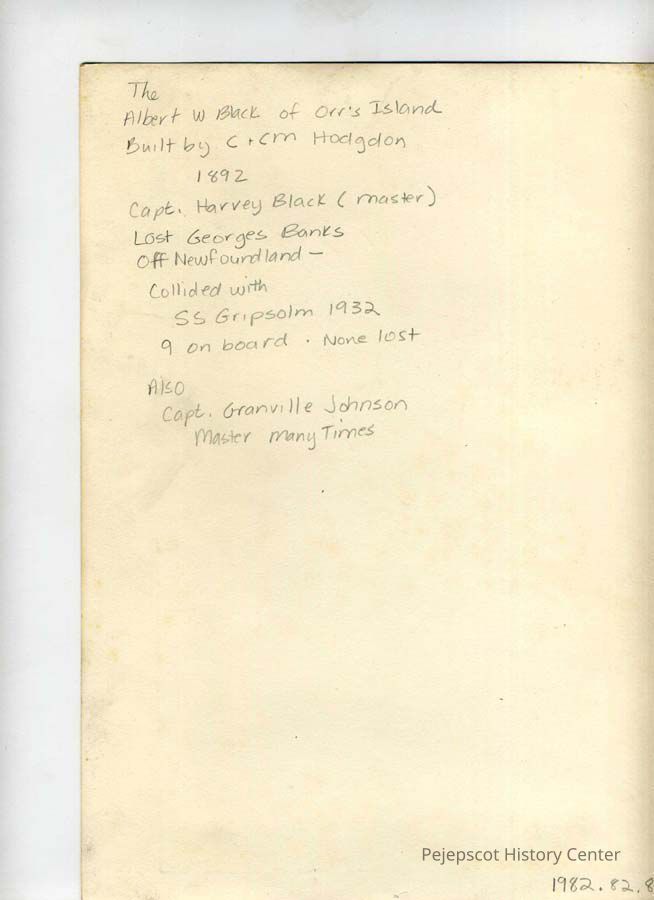 The
Albert W Black of Orr's Island
Built by C + CM Hodgdon
1892
Capt. Harvey Black (master)
Lost Georges Banks
Off Newfoundland —
Collided with
SS Gripsolm 1932
9 on board. None lost
Also
Capt. Granville Johnson
Master many Times
Pejepscot History Center
1982.82.8